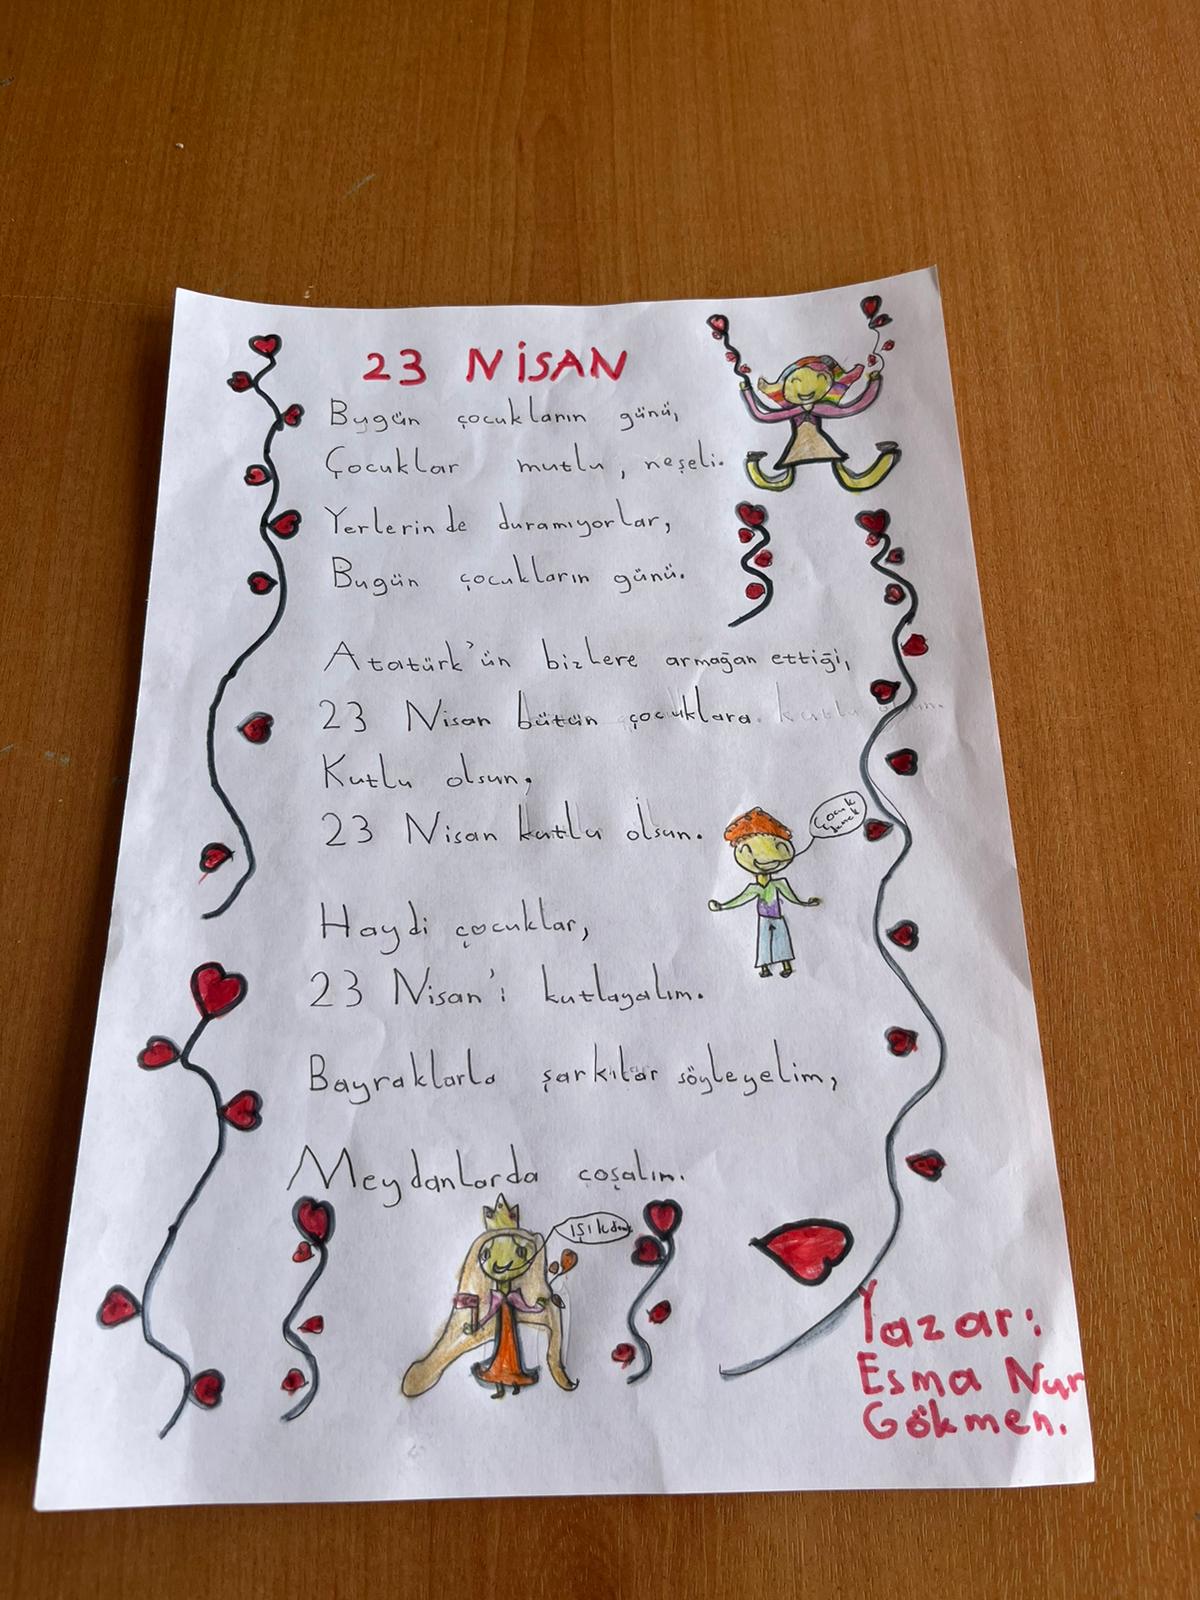 23 NİSAN
Bugün çocukların günü,
Çocuklar mutlu, neşeli.
Yerlerinde duramıyorlar,
Bugün çocukların günü.
Atatürk'ün bizlere armağan ettiği,
23 Nisan bütün çocuklara
Kutlu olsun,
23 Nisan kutlu olsun.
Çocuk
Haydi çocuklar,
23 Nisan'i kutlayalım.
Bayraklarla şarkılar söyleyelim,
Meydanlarda coşalım.
Yazar:
Esma Nur
Gökmen.